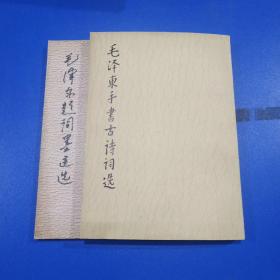 毛泽东题词墨迹选
毛泽东手书古诗词选